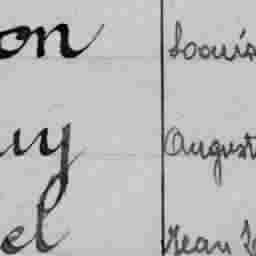 on Louis
uy August
el Jean